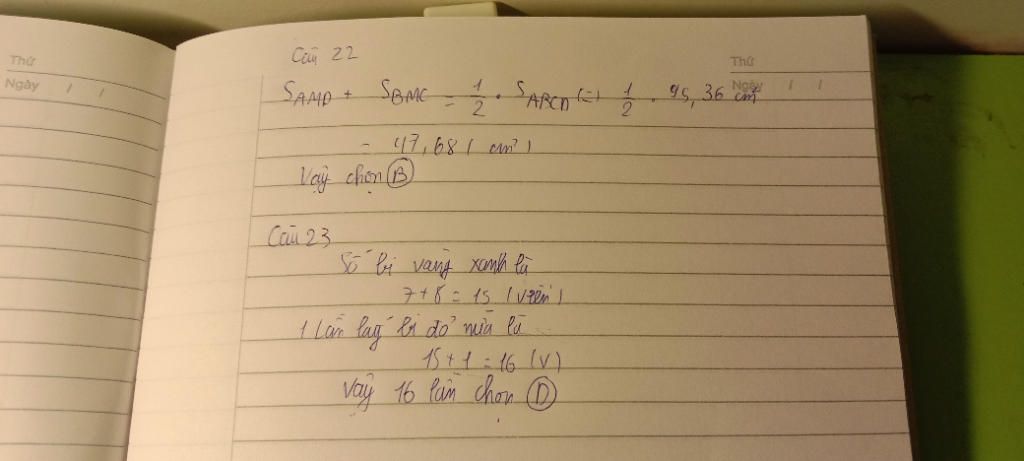 Thứ
Ngày / /
Thứ
Ngày / /
Câu 22
S_AMD + S_BMC = 1/2 . S_ABCD (=) 1/2 . 95,36 cm²
= 47,68 ( cm² )
Vậy chọn B
Câu 23
Số bi vàng xanh là
7+8 = 15 (viên)
1 lần lấy bi đỏ nữa là
15+1 = 16 (v)
Vậy 16 lần chọn D